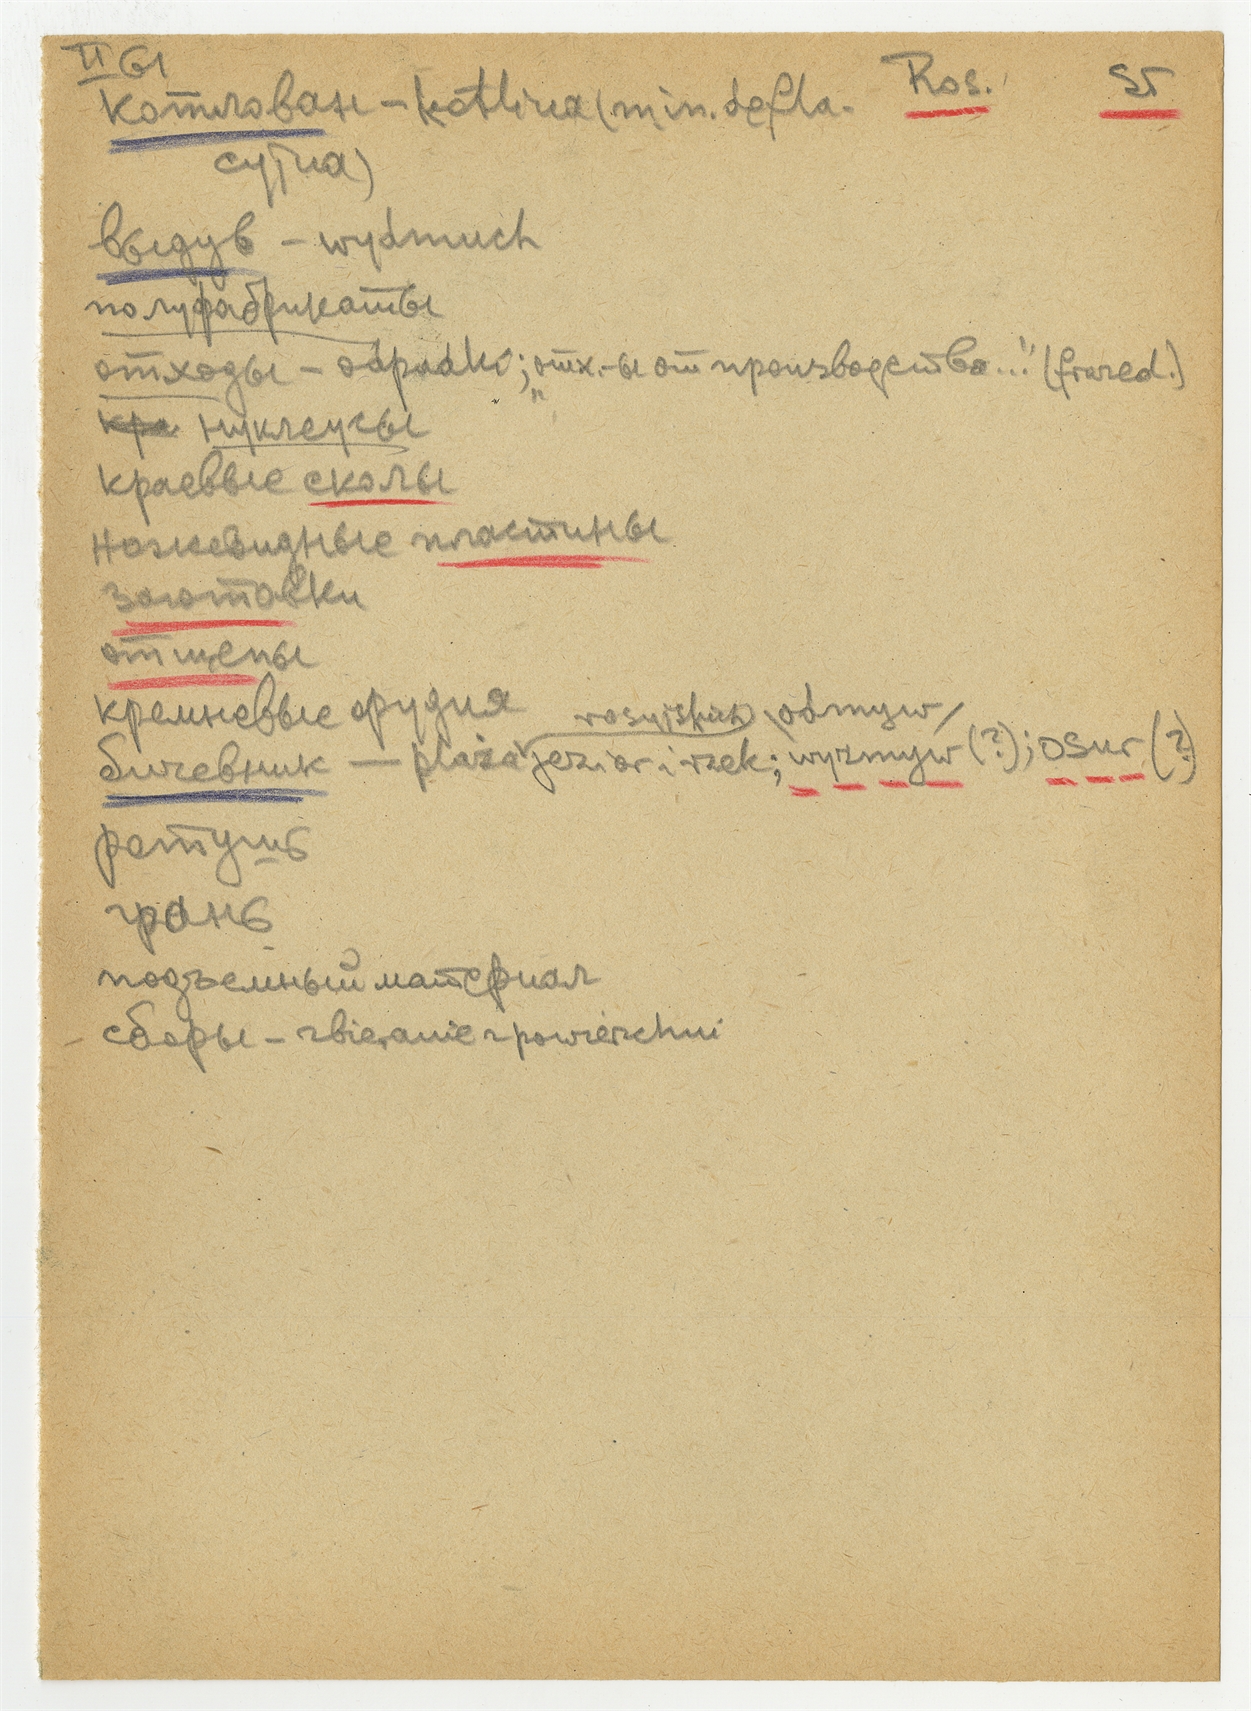 II 61
Ros. St
котлован – kotlina (m. in. defla-
cyjna)
выдув – wydmuch
полуфабрикаты
отходы – odpadki; „отх.-ы от производства..." (
нуклеусы
краевые сколы
ножевидные пластины
заготовки
отщепы
кремневые орудия
rosyjskich odmyw
бичевник — plaża jezior i rzek; wyzmyw (?); osur (?)
ретушь
грань
подъемный материал
сборы – zbieranie z powierzchni